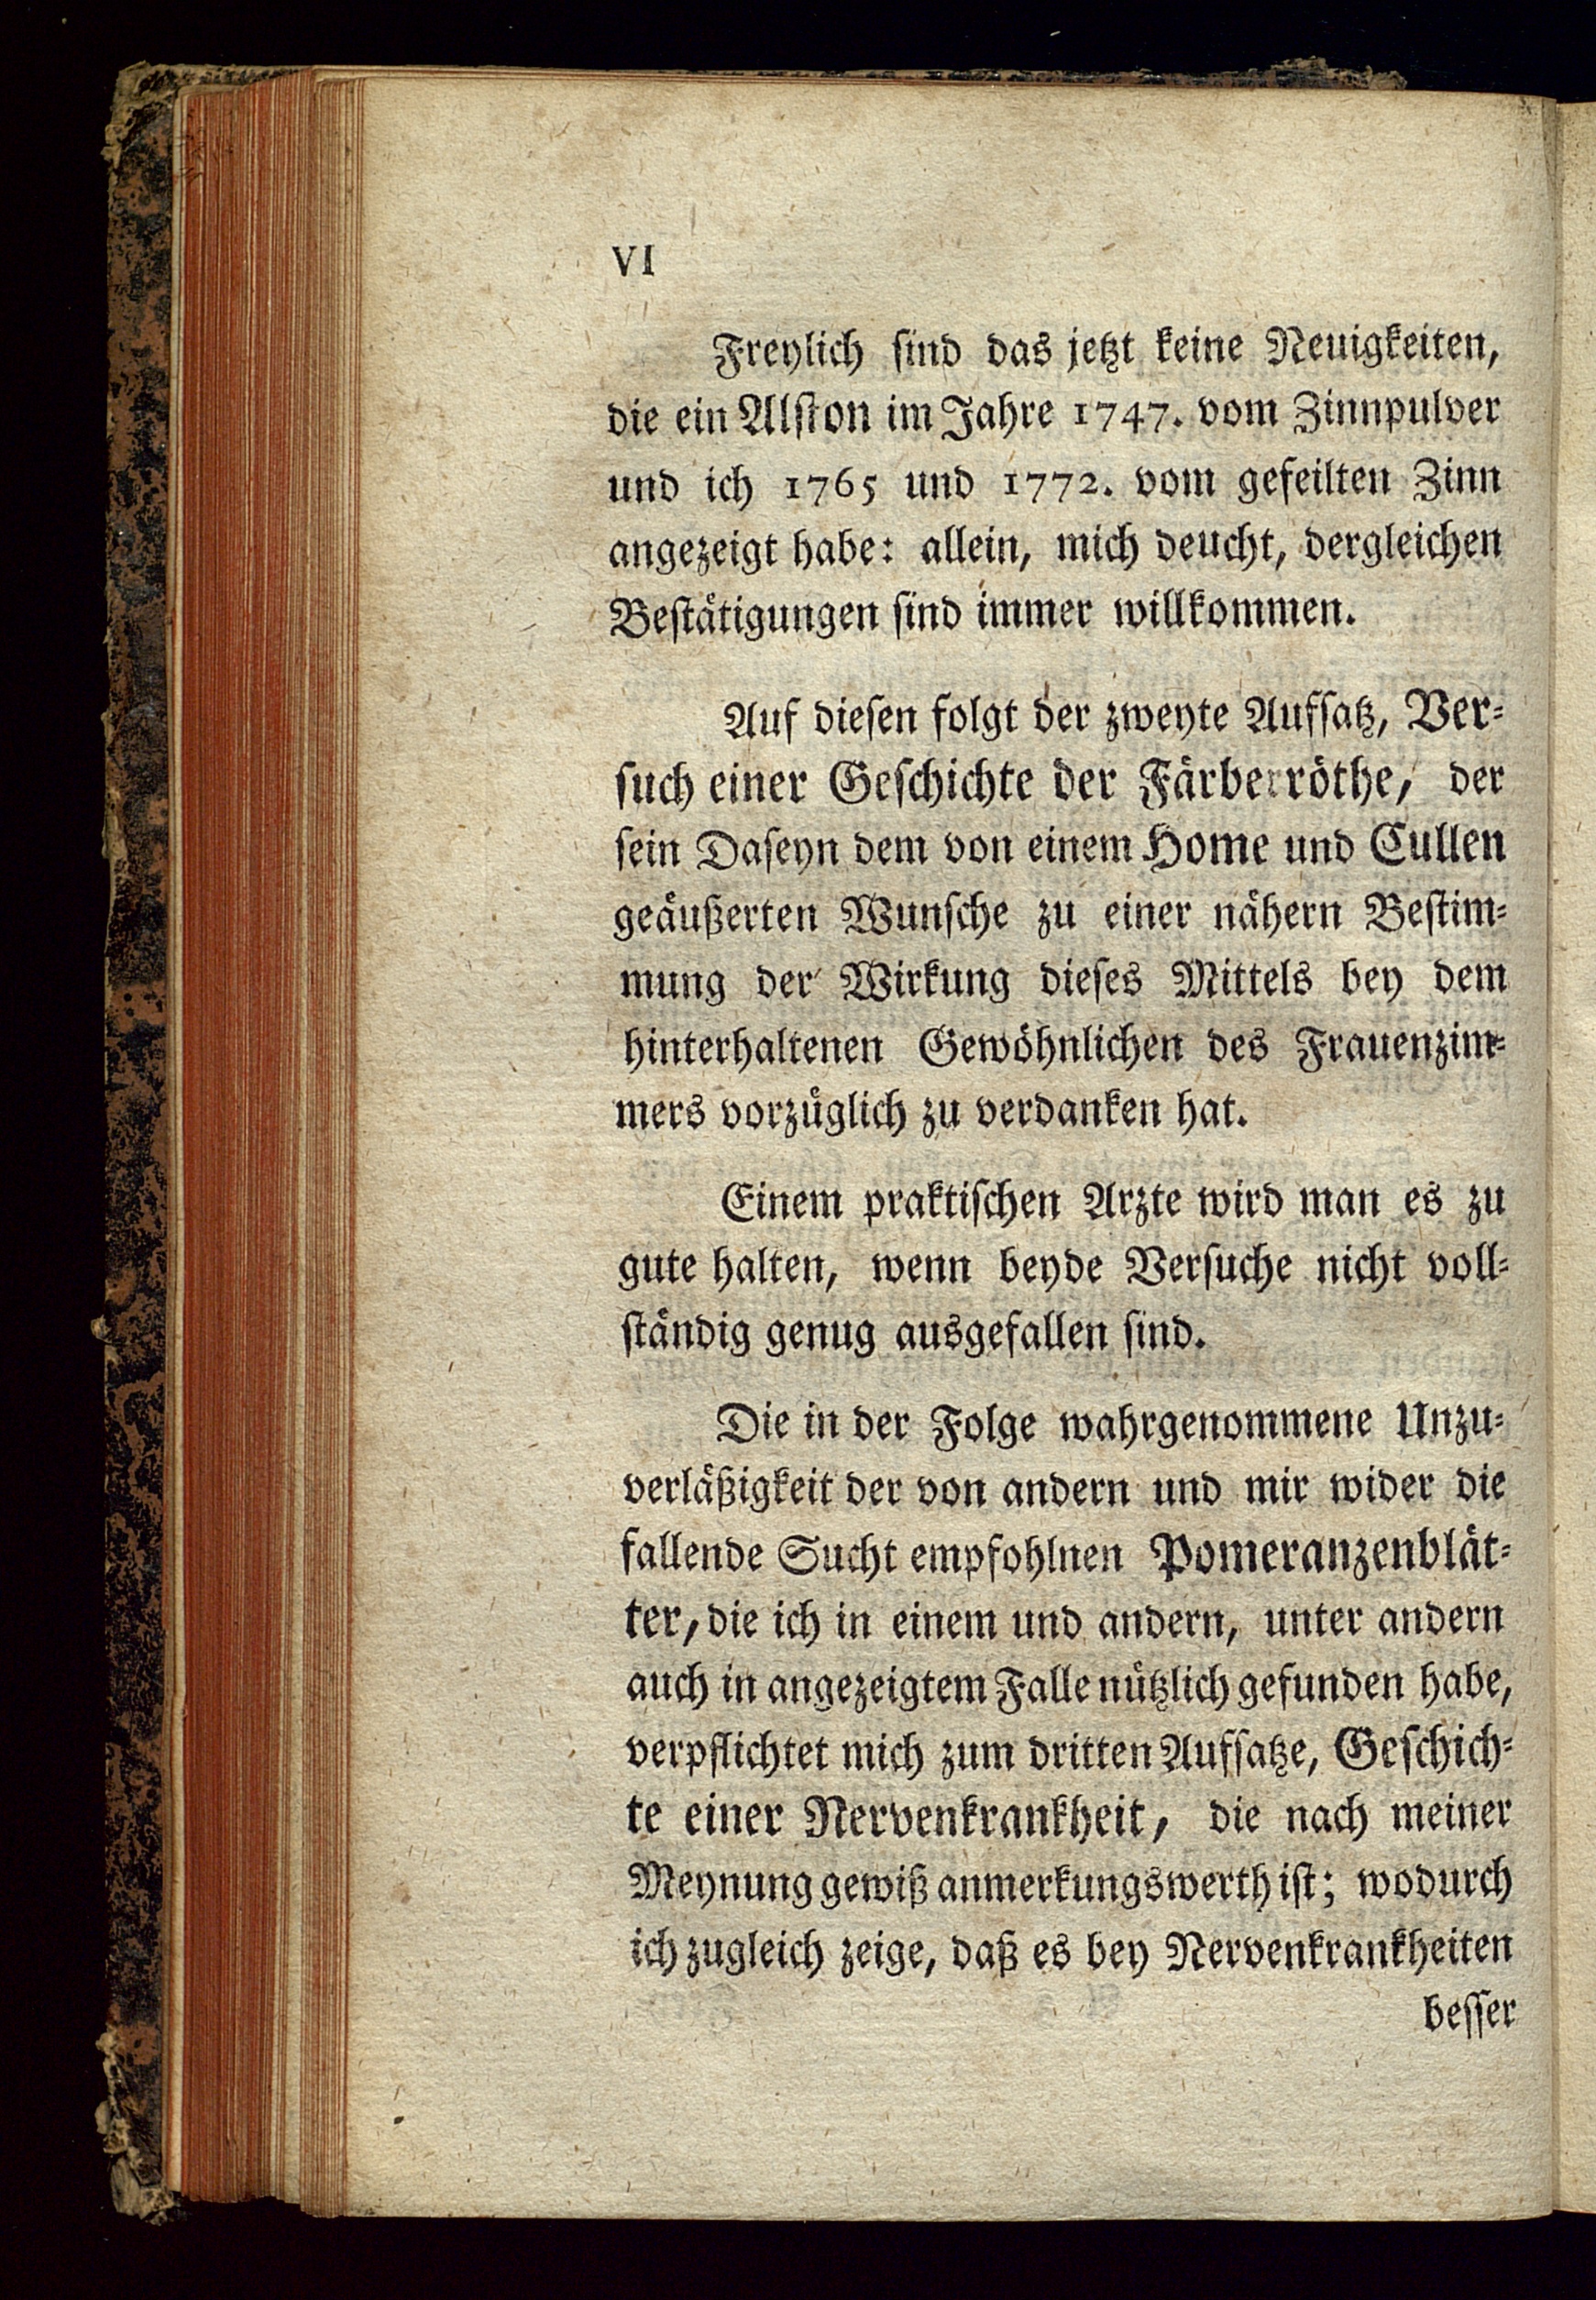 VI
Freylich sind das jetzt keine Neuigkeiten,
die ein Alston im Jahre 1747. vom Zinnpulver
und ich 1765 und 1772. vom gefeilten Zinn
angezeigt habe: allein, mich deucht, dergleichen
Bestätigungen sind immer willkommen.
Auf diesen folgt der zweyte Aufsatz, Ver-
such einer Geschichte der Färberröthe, der
sein Daseyn dem von einem Home und Cullen
geäußerten Wunsche zu einer nähern Bestim-
mung der Wirkung dieses Mittels bey dem
hinterhaltenen Gewöhnlichen des Frauenzim-
mers vorzüglich zu verdanken hat.
Einem praktischen Arzte wird man es zu
gute halten, wenn beyde Versuche nicht voll-
ständig genug ausgefallen sind.
Die in der Folge wahrgenommene Unzu-
verläßigkeit der von andern und mir wider die
fallende Sucht empfohlnen Pomeranzenblät-
ter, die ich in einem und andern, unter andern
auch in angezeigtem Falle nützlich gefunden habe,
verpflichtet mich zum dritten Aufsatze, Geschich-
te einer Nervenkrankheit, die nach meiner
Meynung gewiß anmerkungswerth ist; wodurch
ich zugleich zeige, daß es bey Nervenkrankheiten
besser